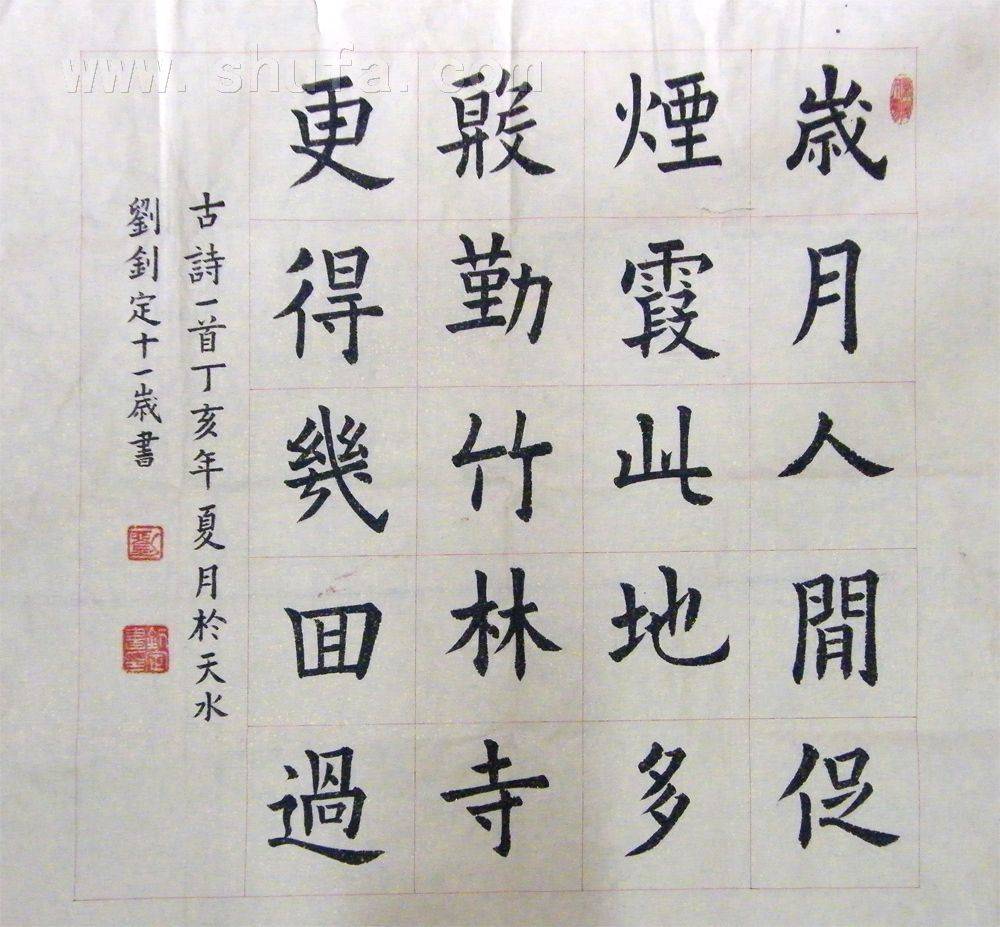 歲月人間促
煙霞此地多
殷勤竹林寺
更得幾回過
古詩一首丁亥年夏月於天水
劉釗定十一歲書
www.shufa.com